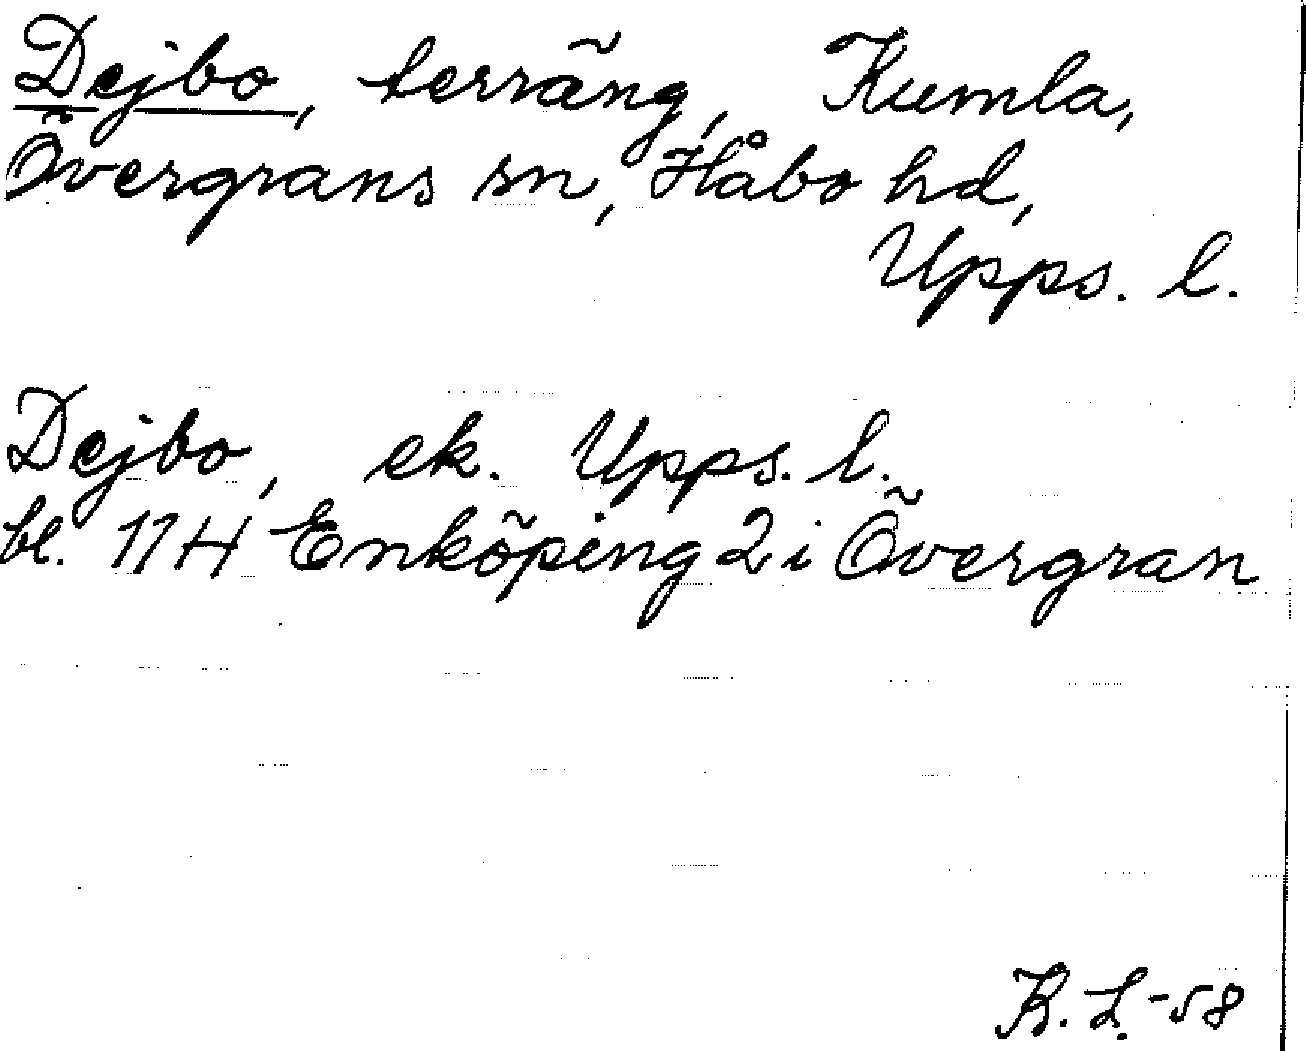 Dejbo, terräng, Kumla,
Övergrans sn, Håbo hd,
Upps. l.
Dejbo, ek. Upps. l.
bl. 11H Enköping 2 i Övergran
K. L. -58